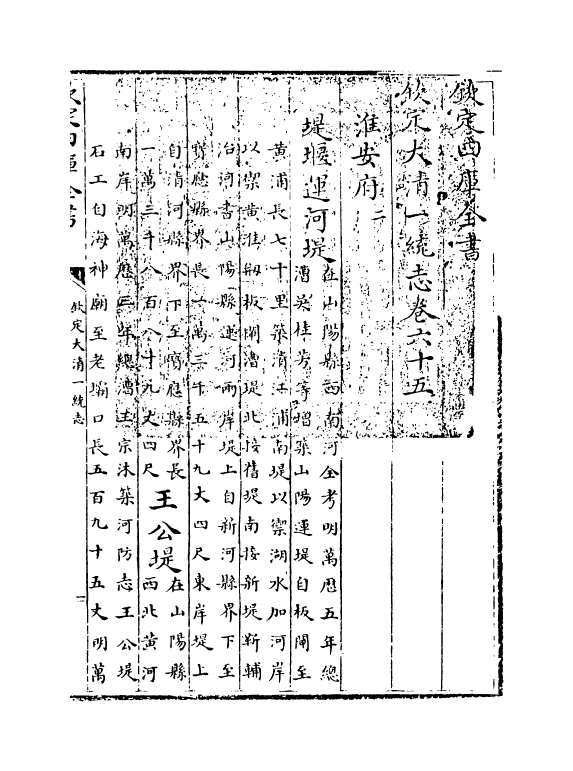 欽定四庫全書
欽定大清一統志卷六十五
淮安府二
堤堰運河堤在山陽縣西南河全考明萬厯五年總
漕吳桂芳等增築山陽運堤自板閘至
黃浦長七十里築清江浦南堤以禦湖水加河岸
以禦黃淮剏板閘漕堤北接舊堤南接新堤靳輔
治河書山陽縣運河兩岸堤上自新河縣界下至
寳應縣界長一萬三千五十九丈四尺東岸堤上
自清河縣界下至寳應縣界長
一萬三千八百八十九丈四尺
王公堤在山陽縣
西北黃河
南岸明萬厯三年總漕王宗沐築河防志王公堤
石工自海神廟至老壩口長五百九十五丈明萬
欽定四庫全書
欽定大清一統志
一